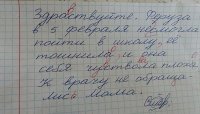 Здраствуйте. Фируза
в 5 февраля несмогла
пойти в школу, её
тошнило и она
себя чуствовала плохо
К врачу не обраща-
лись мама.